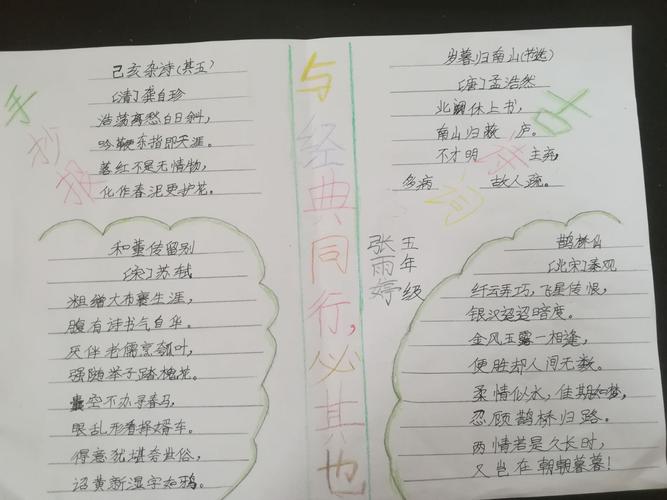 手抄报
己亥杂诗(其五)
[清]龚自珍
浩荡离愁白日斜,
吟鞭东指即天涯。
落红不是无情物,
化作春泥更护花。
和董传留别
[宋]苏轼
粗缯大布裹生涯,
腹有诗书气自华。
厌伴老儒烹瓠叶,
强随举子踏槐花。
囊空不办寻春马,
眼乱形看择婿车。
得意犹堪夸世俗,
诏黄新湿字如鸦。
与经典同行,必其也
岁暮归南山(节选)
[唐]孟浩然
北阙休上书,
南山归敝庐。
不才明主弃,
多病故人疏。
五年级
张雨婷
鹊桥仙
[北宋]秦观
纤云弄巧,飞星传恨,
银汉迢迢暗度。
金风玉露一相逢,
便胜却人间无数。
柔情似水,佳期如梦,
忍顾鹊桥归路。
两情若是久长时,
又岂在朝朝暮暮!